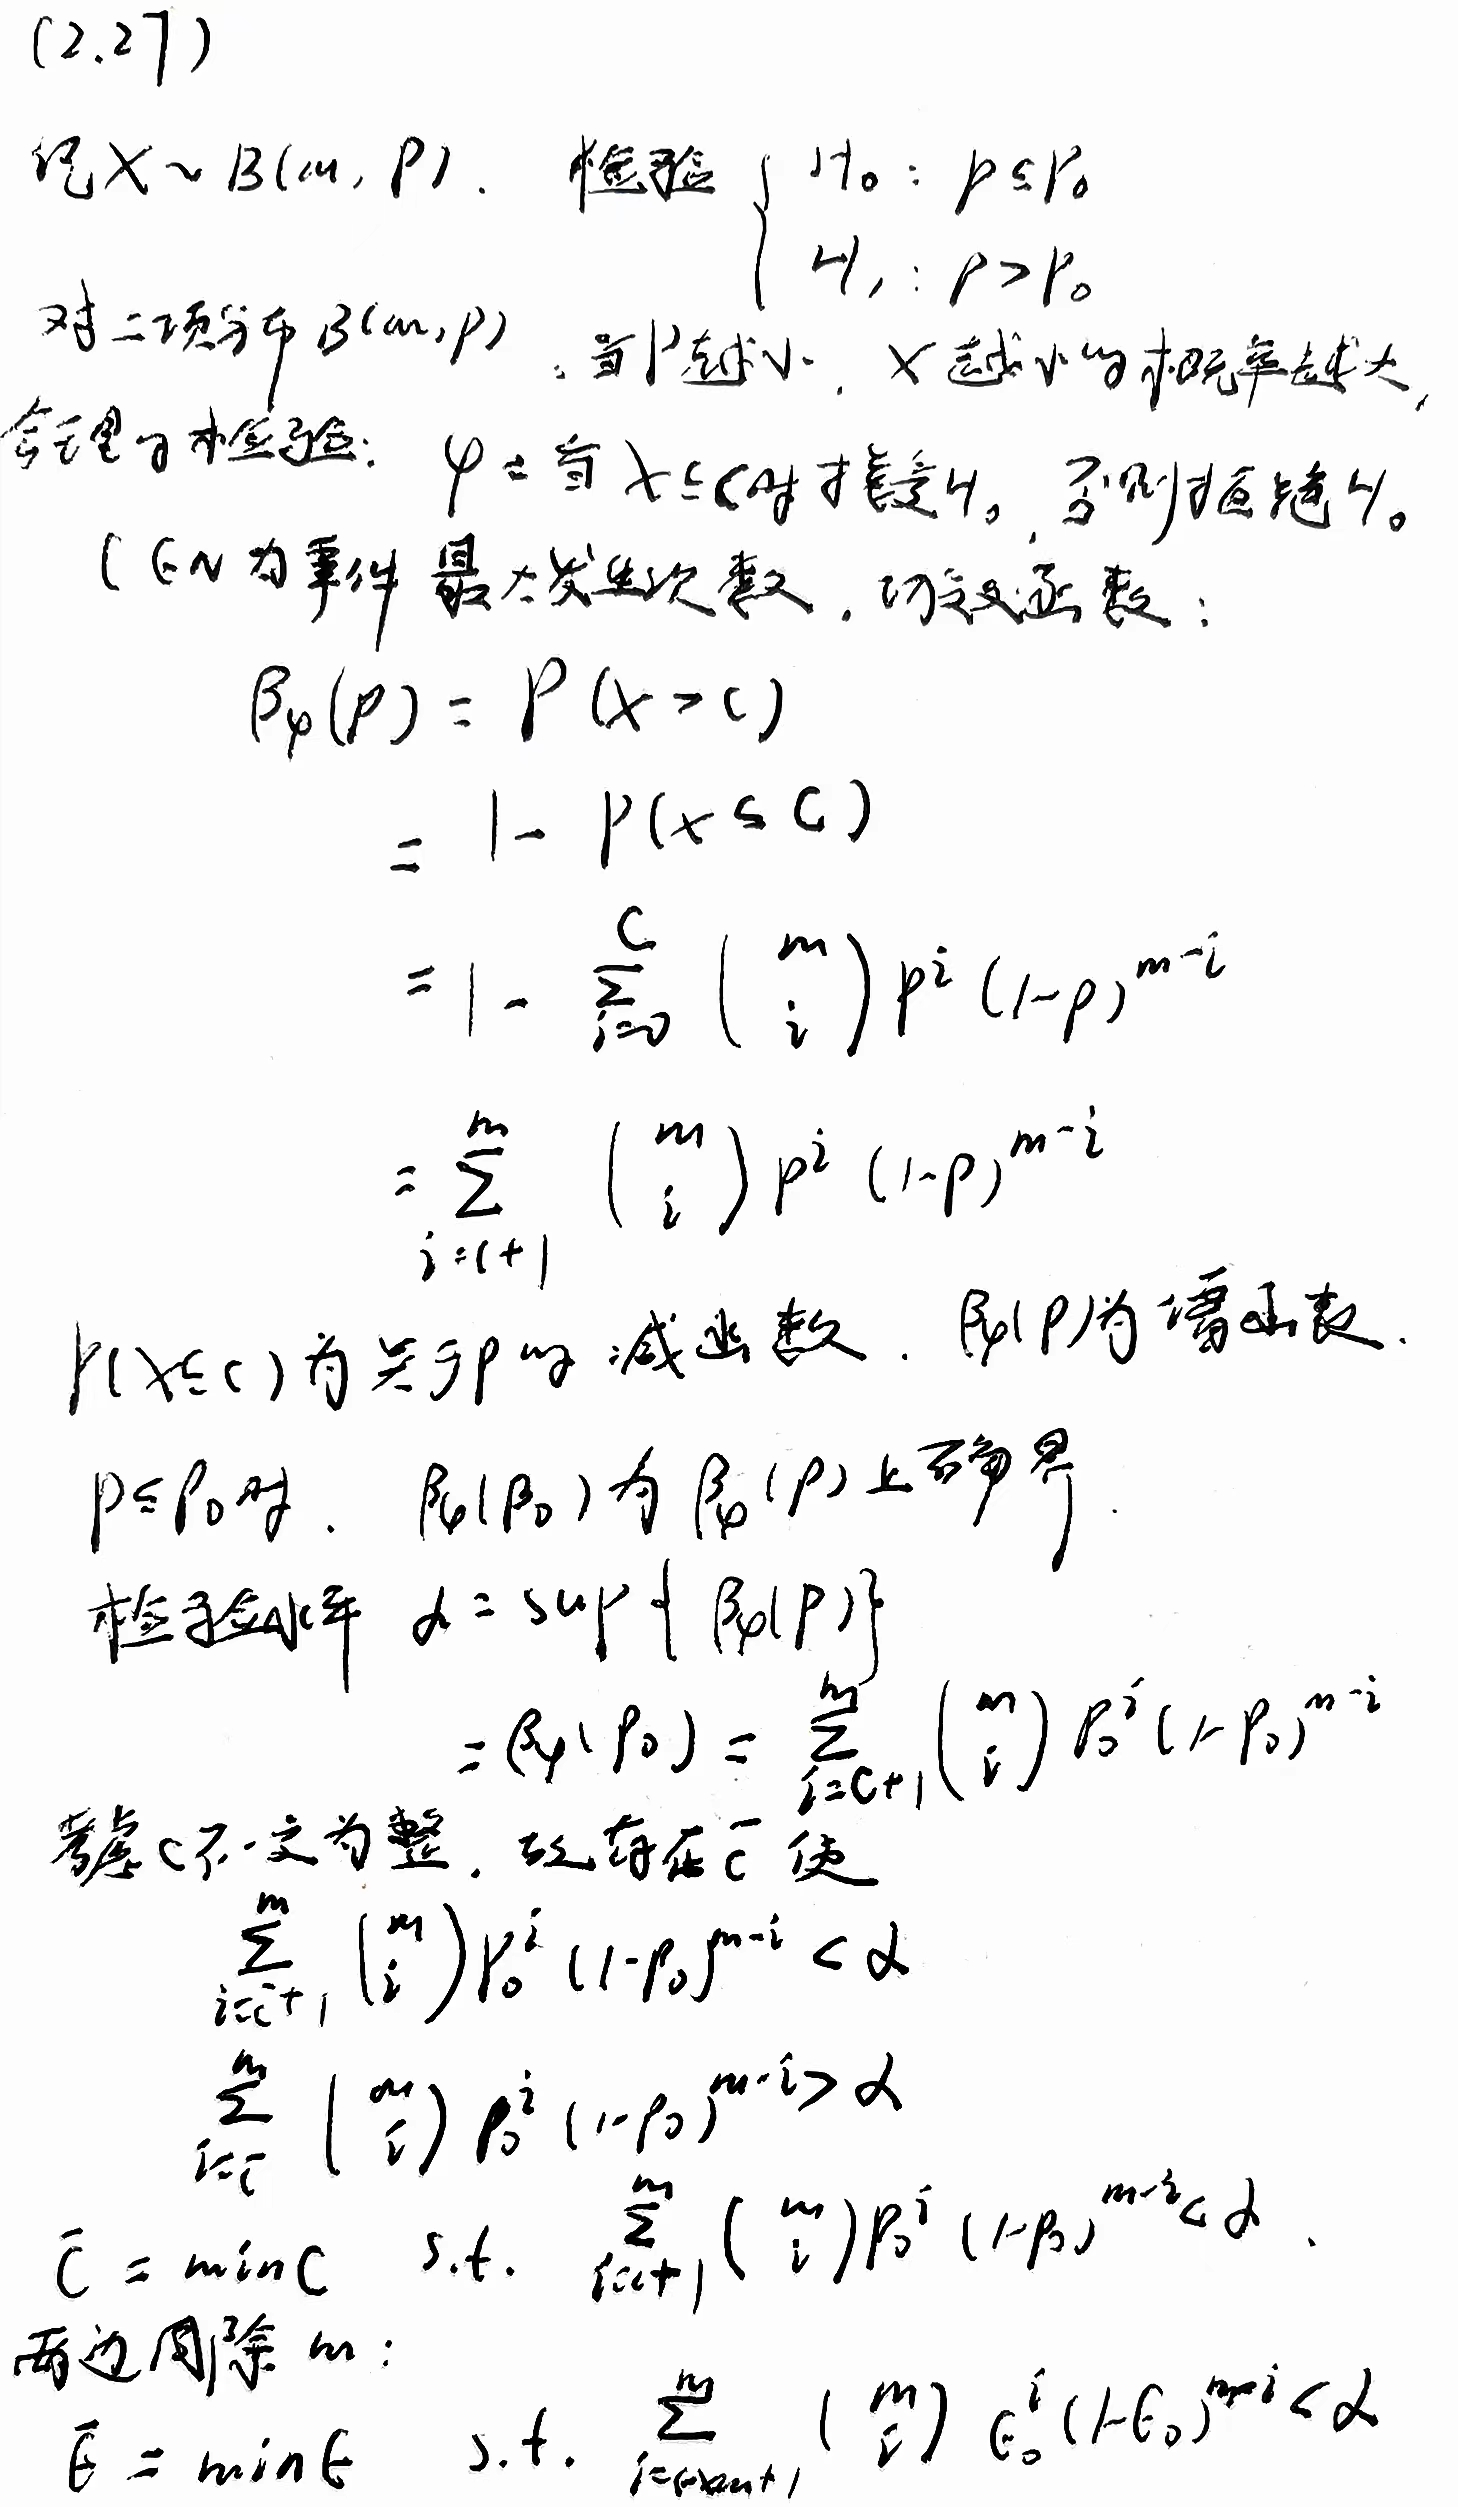 (2.27)
设X~B(m,P). 检验 { H₀: p≤p₀
H₁: p>p₀
对二项分布B(m,p),当p越小,X越小的概率越大,
合理的检验: φ:当X≤C时接受H₀,否则拒绝H₀.
C∈N为事件最大发生次数.功效函数:
β_φ(p) = P(X>C)
= 1-P(X≤C)
= 1-∑_{i=0}^{C} (m i) p^i (1-p)^{m-i}
= ∑_{i=C+1}^{m} (m i) p^i (1-p)^{m-i}
P(X≤C)为关于p的减函数. β_φ(p)为增函数.
p≤p₀时. β_φ(p₀)为β_φ(p)上确界.
检验水平 α = sup{β_φ(p)}
= β_φ(p₀) = ∑_{i=C+1}^{m} (m i) p₀^i (1-p₀)^{m-i}
考虑C不一定为整,故存在C̄使
∑_{i=C̄+1}^{m} (m i) p₀^i (1-p₀)^{m-i} < α
∑_{i=C̄}^{m} (m i) p₀^i (1-p₀)^{m-i} > α
C̄ = min C s.t. ∑_{i=C+1}^{m} (m i) p₀^i (1-p₀)^{m-i} < α.
两边同除m:
ϵ̄ = min ϵ s.t. ∑_{i=ϵ×m+1}^{m} (m i) ϵ₀^i (1-ϵ₀)^{m-i} < α